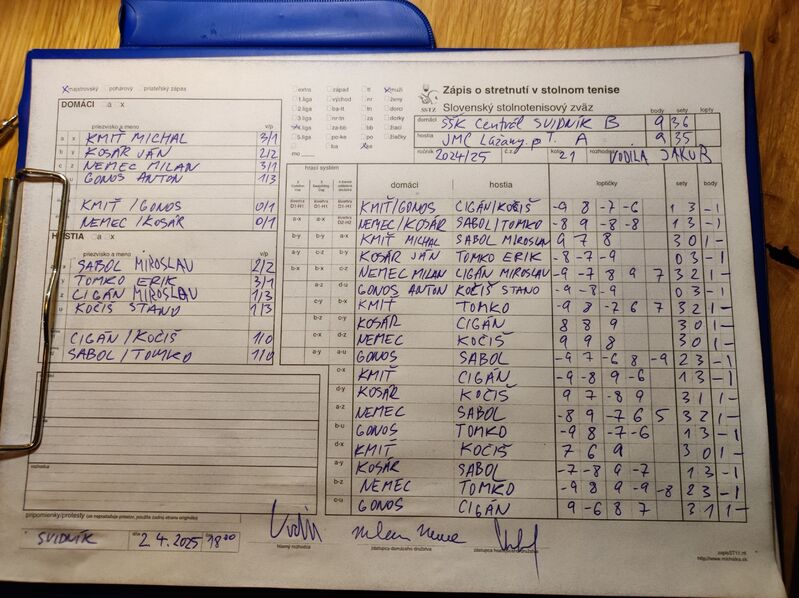 x majstrovský pohárový priateľský zápas
DOMÁCI a x
priezvisko a meno v/p
a x KMIŤ MICHAL 3/1
b y KOSÁR JÁN 2/2
c z NEMEC MILAN 3/1
GONOS ANTON 1/3
KMIŤ/GONOS 0/1
NEMEC/KOSÁR 0/1
HOSTIA a x
priezvisko a meno v/p
SABOL MIROSLAV 2/2
y TOMKO ERIK 3/1
z CIGÁN MIROSLAV 1/3
u KOČIŠ STANO 1/3
CIGÁN/KOČIŠ 1/0
SABOL/TOMKO 1/0
extra západ tl x muži
1.liga východ nr ženy
2.liga ba-tt tn dorci
3.liga nr-tn za dorky
4.liga za-bb bb žiaci
5.liga po-ke po žiačky
ba ke
mo
SSTZ
Zápis o stretnutí v stolnom tenise
Slovenský stolnotenisový zväz
body sety lopty
domáci ŠŠK Centrál SVIDNÍK B 9 36
hostia JMC Lúžany p. T. A 9 35
ročník 2024/25 č.z. kolo 21 rozhodca VODILA JAKUB
hrací systém
domáci hostia loptičky sety body
KMIŤ/GONOS CIGÁN/KOČIŠ -9 8 -7 -6 1 3 - 1
a-x NEMEC/KOSÁR SABOL/TOMKO -8 9 -8 -8 1 3 - 1
b-y b-y a-x KMIŤ MICHAL SABOL MIROSLAV 9 7 8 3 0 1 -
a-y c-z b-y KOSÁR JÁN TOMKO ERIK -8 -7 -9 0 3 - 1
b-x b-x c-z NEMEC MILAN CIGÁN MIROSLAV -9 -7 8 9 7 3 2 1 -
a-z d-u GONOS ANTON KOČIŠ STANO -9 -8 -9 0 3 - 1
c-y b-x KMIŤ TOMKO -9 8 -7 6 7 3 2 1 -
b-z c-y KOSÁR CIGÁN 8 8 9 3 0 1 -
c-x d-z NEMEC KOČIŠ 9 9 8 3 0 1 -
a-y a-u GONOS SABOL -9 7 -6 8 -9 2 3 - 1
c-x KMIŤ CIGÁN -9 -8 9 -6 1 3 - 1
d-y KOSÁR KOČIŠ 9 7 -8 9 3 1 1 -
a-z NEMEC SABOL -8 9 -7 6 5 3 2 1 -
b-u GONOS TOMKO -9 8 -7 -6 1 3 - 1
d-x KMIŤ KOČIŠ 7 6 9 3 0 1 -
a-y KOSÁR SABOL -7 -8 9 -7 1 3 - 1
b-z NEMEC TOMKO -9 8 9 -9 -8 2 3 - 1
c-u GONOS CIGÁN 9 -6 8 7 3 1 1 -
rozhodca
pripomienky/protesty (ak nepostačuje priestor, použite zadnú stranu originálu)
SVIDNÍK dňa 2.4.2025 18 00
hlavný rozhodca
zástupca domáceho družstva
zástupca hosťujúceho družstva